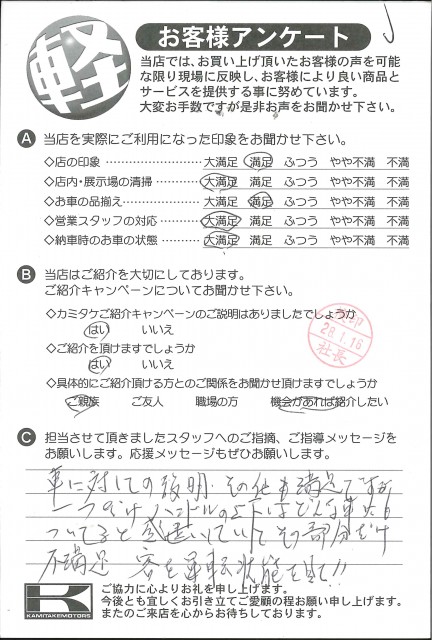 軽
お客様アンケート
当店では、お買い上げ頂いたお客様の声を可能
な限り現場に反映し、お客様により良い商品と
サービスを提供する事に努めています。
大変お手数ですが是非お声をお聞かせ下さい。
A 当店を実際にご利用になった印象をお聞かせ下さい。
◇店の印象 ………………… 大満足 満足 ふつう やや不満 不満
◇店内・展示場の清掃………… 大満足 満足 ふつう やや不満 不満
◇お車の品揃え……………… 大満足 満足 ふつう やや不満 不満
◇営業スタッフの対応………… 大満足 満足 ふつう やや不満 不満
◇納車時のお車の状態………… 大満足 満足 ふつう やや不満 不満
B 当店はご紹介を大切にしております。
ご紹介キャンペーンについてお聞かせ下さい。
◇カミタケご紹介キャンペーンのご説明はありましたでしょうか
はい いいえ
◇ご紹介を頂けますでしょうか
はい いいえ
◇具体的にご紹介頂ける方とのご関係をお聞かせ頂けますでしょうか
ご親族 ご友人 職場の方 機会があれば紹介したい
28.1.16
社長
C 担当させて頂きましたスタッフへのご指摘、ご指導メッセージを
お願いします。応援メッセージもぜひお願いします。
車に対しての説明・その他も満足ですが
一つだけハンドルの上下はどんな車にも
ついてると思っていてその部分だけ
不満足 客を運転状態を見て!!
K
KAMITAKEMOTORS
ご協力に心よりお礼を申し上げます。
今後とも宜しくお引き立てご愛顧の程お願い申し上げます。
またのご来店を心からお待ちしております。